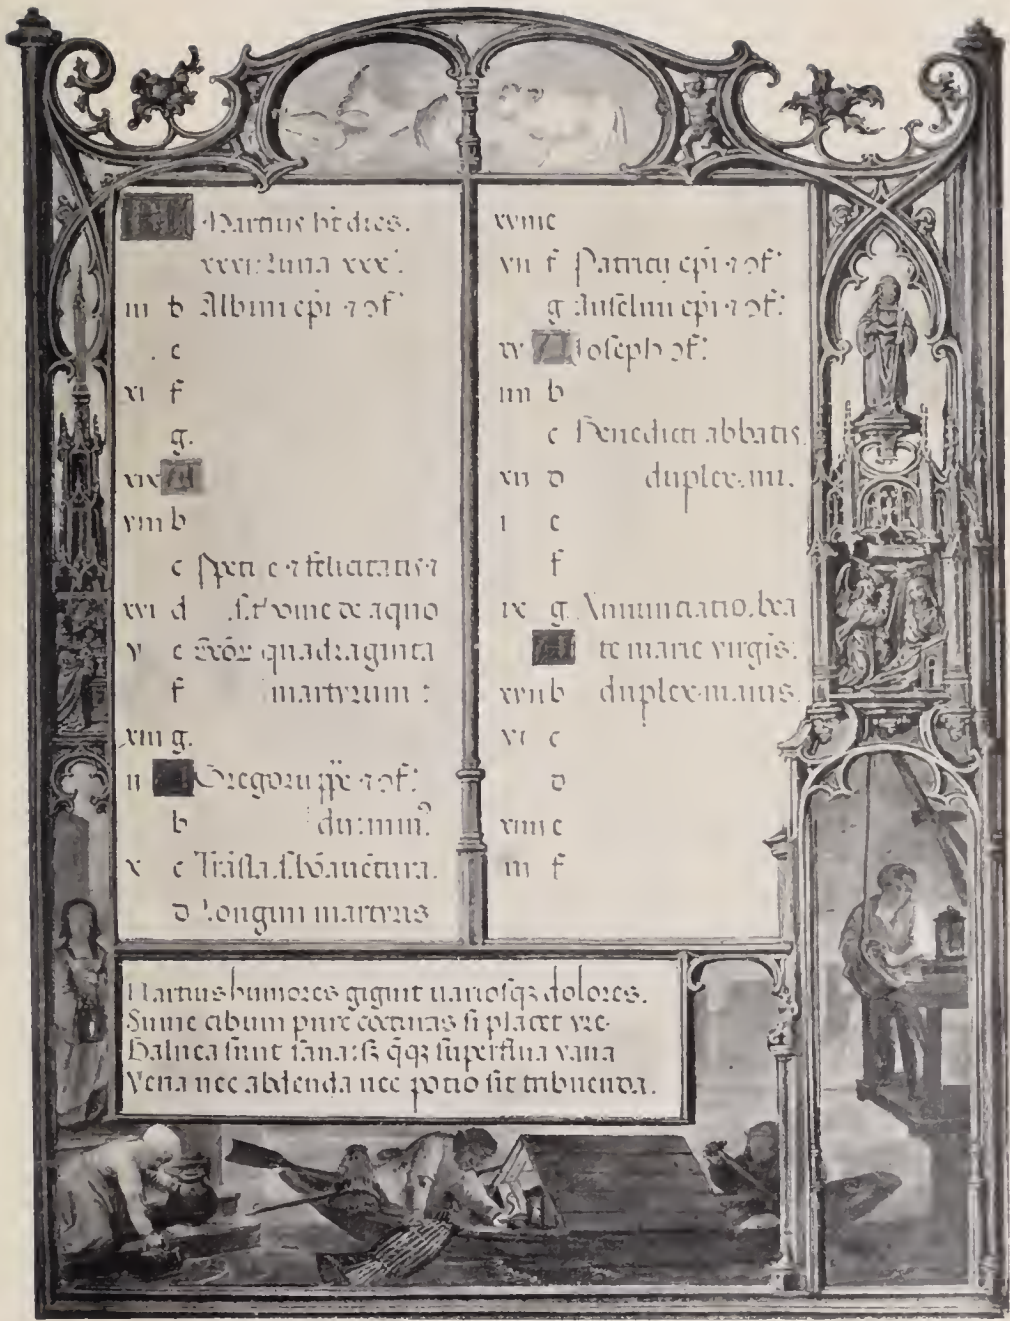 Martius ht dies.
xxxi: Luna xxx:
iii b Albini epi ⁊ ɔf:
c
xi f
g.
xix A
viii b
c Ppeti e ⁊ felicitatis ⁊
xvi d s. t
v e quadraginta
f martyrum :
xiii g.
ii Gregorii pp ⁊ ɔf:
b du: min
x c Trāsla. s. boauētura.
d Longini martyris
xviii e
vii f Patricij epi ⁊ ɔf:
g Anselmi epi ⁊ ɔf:
xv A Joseph ɔf:
iiii b
c Benedicti abbatis.
xii d duplex. mi.
i e
f
ix g Annunciatio. bea
A te marie virgis:
xvii b duplex. maius.
vi c
d
xiiii e
iii f
Martius humores gignit uariosqꝫ dolores.
Sume cibum pure cocturas si placet vre.
Balnea sunt sana: sꝫ q̄qꝫ superflua vana
Vena nec abdenda nec potio sit tribuenda.